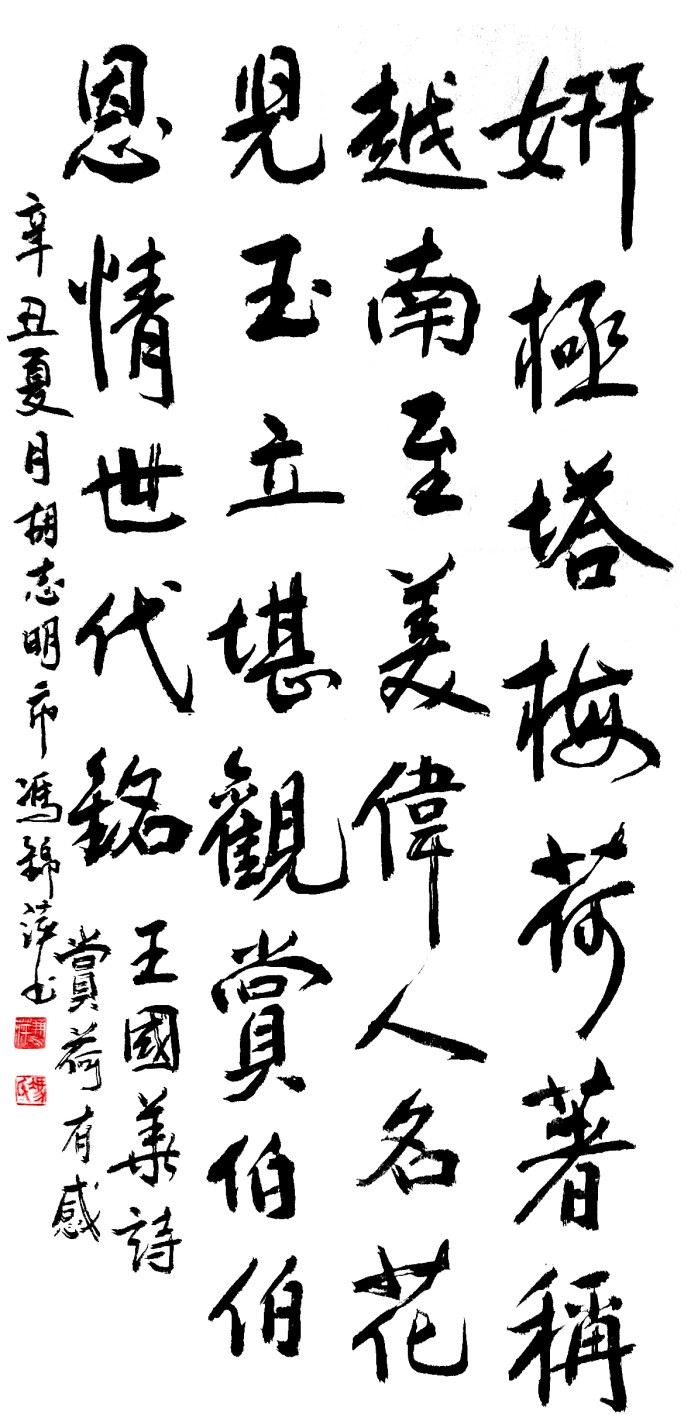 妍極塔梅荷著稱
越南至美偉人名花
見玉立堪觀賞伯伯
恩情世代銘
王國華詩
賞荷有感
辛丑夏月胡志明市馮錦萍书